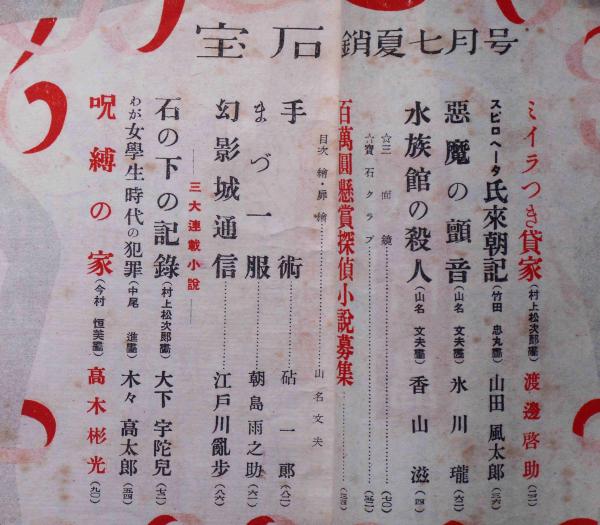 宝石 銷夏七月号
ミイラつき貸家 (村上松次郎畫) 渡邊啓助
スピロヘータ氏來朝記 (竹田 忠丸畫) 山田 風太郎 (三六)
惡魔の顫音 (山名 文夫畫) 氷川 瓏
水族館の殺人 (山名 文夫畫) 香山 滋 (四)
☆三面鏡 (七〇)
☆寶石クラブ
百萬圓懸賞探偵小說募集
目次繪・扉繪 山名文夫
手術 砧 一郎 (八二)
まづ一服 朝島雨之助 (六二)
幻影城通信 江戸川亂步 (八六)
三大連載小說
石の下の記錄 (村上松次郎畫) 大下 宇陀兒 (七二)
わが女學生時代の犯罪 (中尾 進畫) 木々 高太郎 (五四)
呪縛の家 (今村 恒美畫) 高木彬光 (九〇)